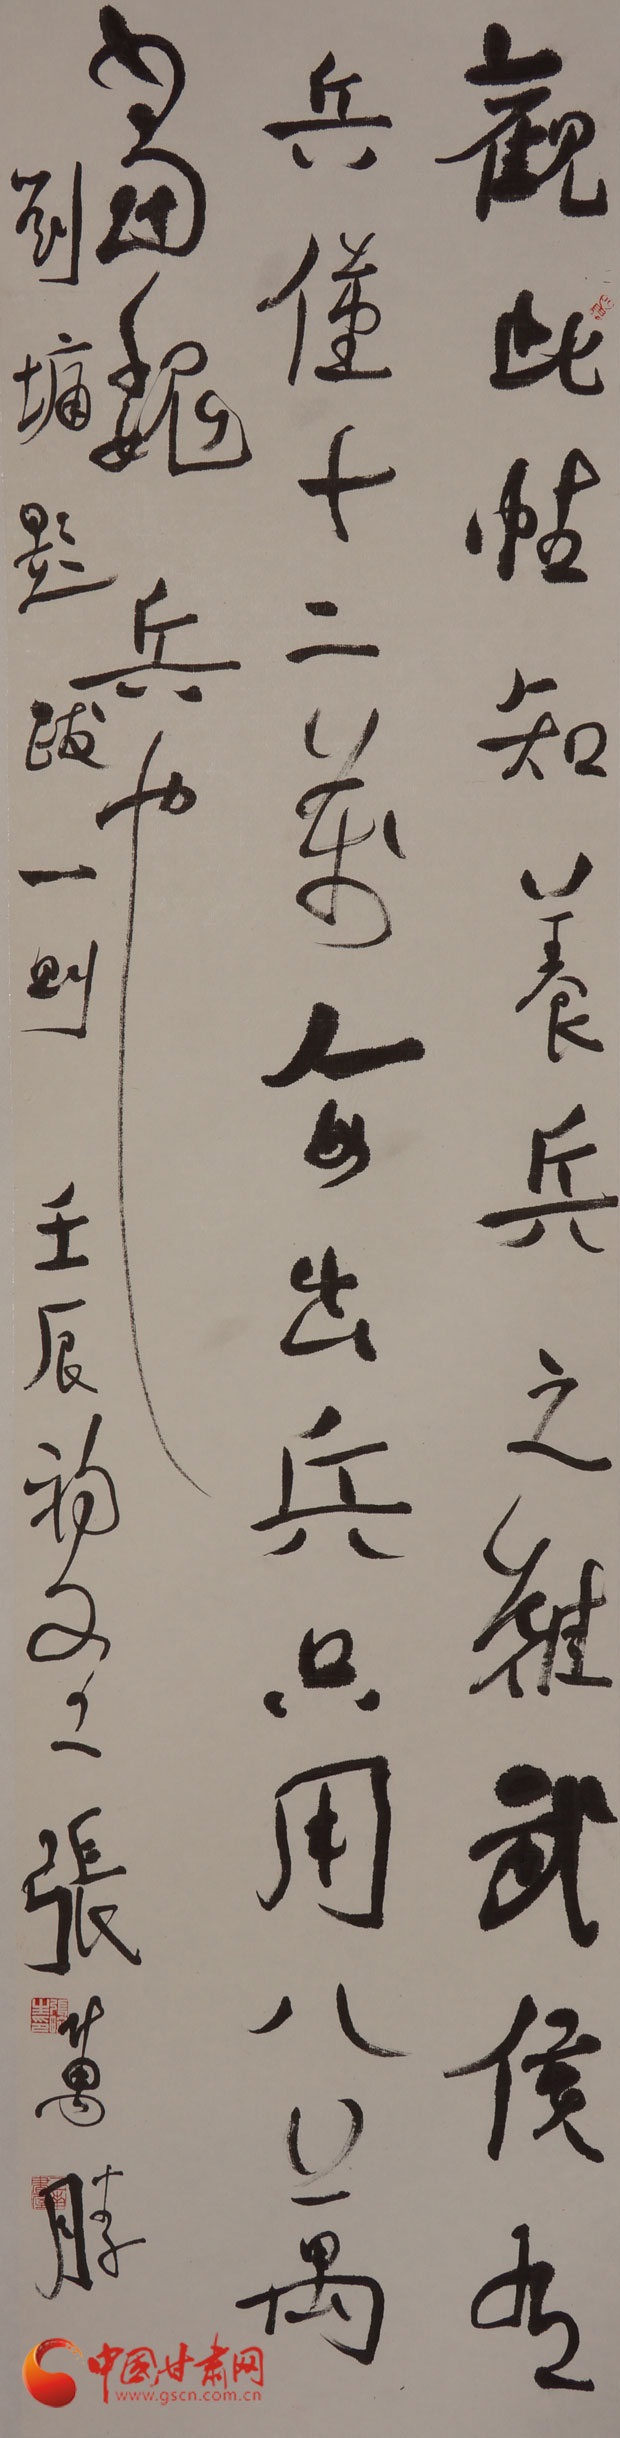 觀此帖知養兵之難武侯有
兵僅十二萬每出兵只用八萬
當魏兵
劉墉題跋一則 壬辰初 張萬勝
中国甘肃网
www.gscn.com.cn